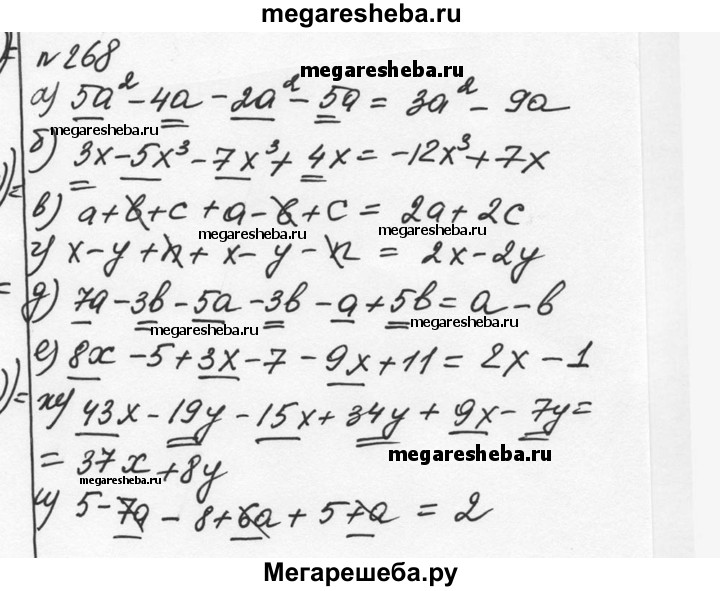 megaresheba.ru
№ 268
megaresheba.ru
а) 5a² - 4a - 2a² - 5a = 3a² - 9a
megaresheba.ru
б) 3x - 5x³ - 7x³ + 4x = -12x³ + 7x
в) a + b + c + a - b + c = 2a + 2c
megaresheba.ru megaresheba.ru
г) x - y + n + x - y - n = 2x - 2y
д) 7a - 3b - 5a - 3b - a + 5b = a - b
megaresheba.ru megaresheba.ru
е) 8x - 5 + 3x - 7 - 9x + 11 = 2x - 1
ж) 43x - 19y - 15x + 34y + 9x - 7y =
= 37x + 8y
megaresheba.ru
megaresheba.ru
и) 5 - 7a - 8 + 6a + 5 + a = 2
Мегарешеба.ру